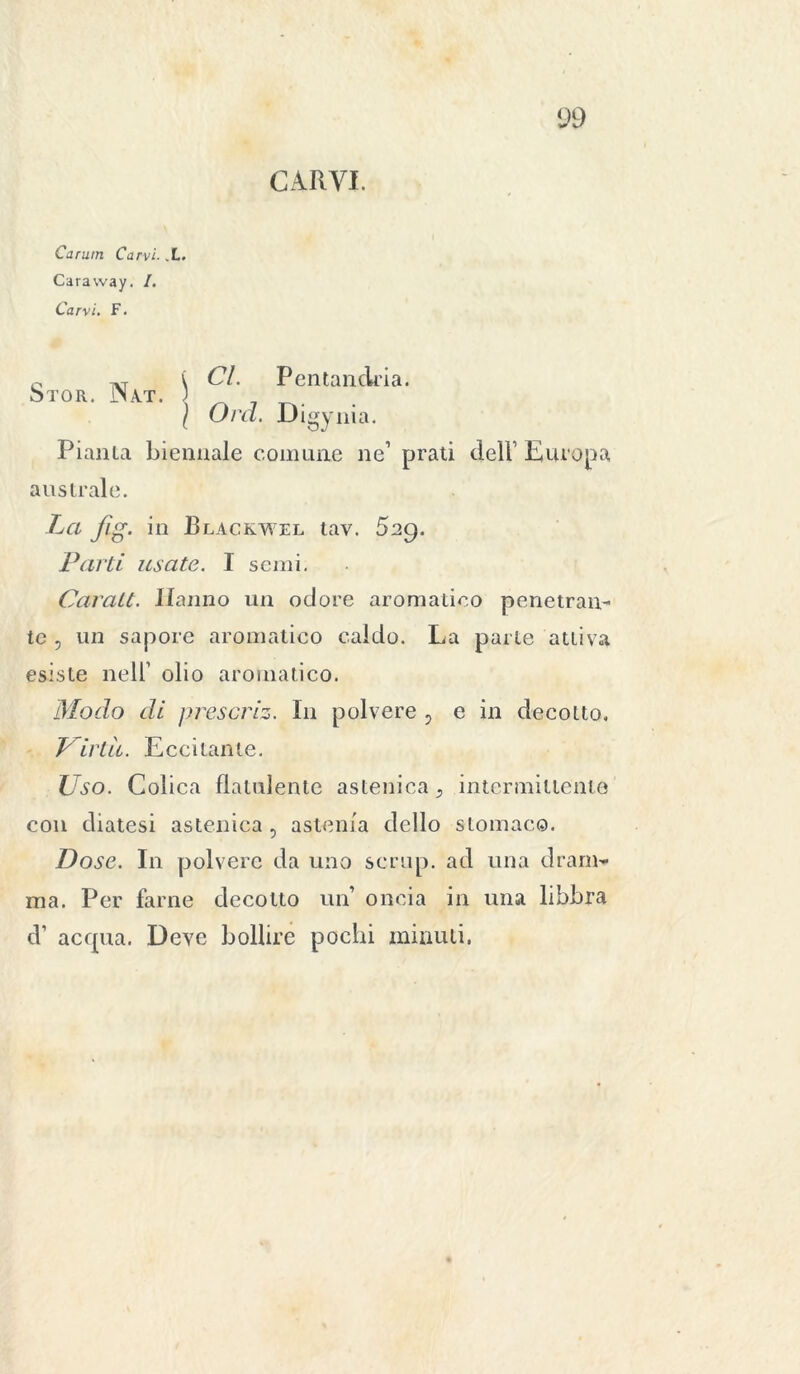 99
CARVI.
Carum Carvi. L.
Caraway. I.
Carvi. F.
Stor. Nat. Cl. Pentandria.
Ord. Digynia.
Pianta biennale comune ne' prati dell' Europa
australe.
La fig. in Blackwel tav. 529.
Parti usate. I semi.
Caratt. Hanno un odore aromatico penetran-
te, un sapore aromatico caldo. La parte attiva
esiste nell' olio aromatico.
Modo di prescriz. In polvere, e in decotto.
Virtù. Eccitante.
Uso. Colica flatulente astenica, intermittente
con diatesi astenica, astenía dello stomaco.
Dose. In polvere da uno scrup. ad una dram-
ma. Per farne decotto un' oncia in una libbra
d' acqua. Deve bollire pochi minuti.